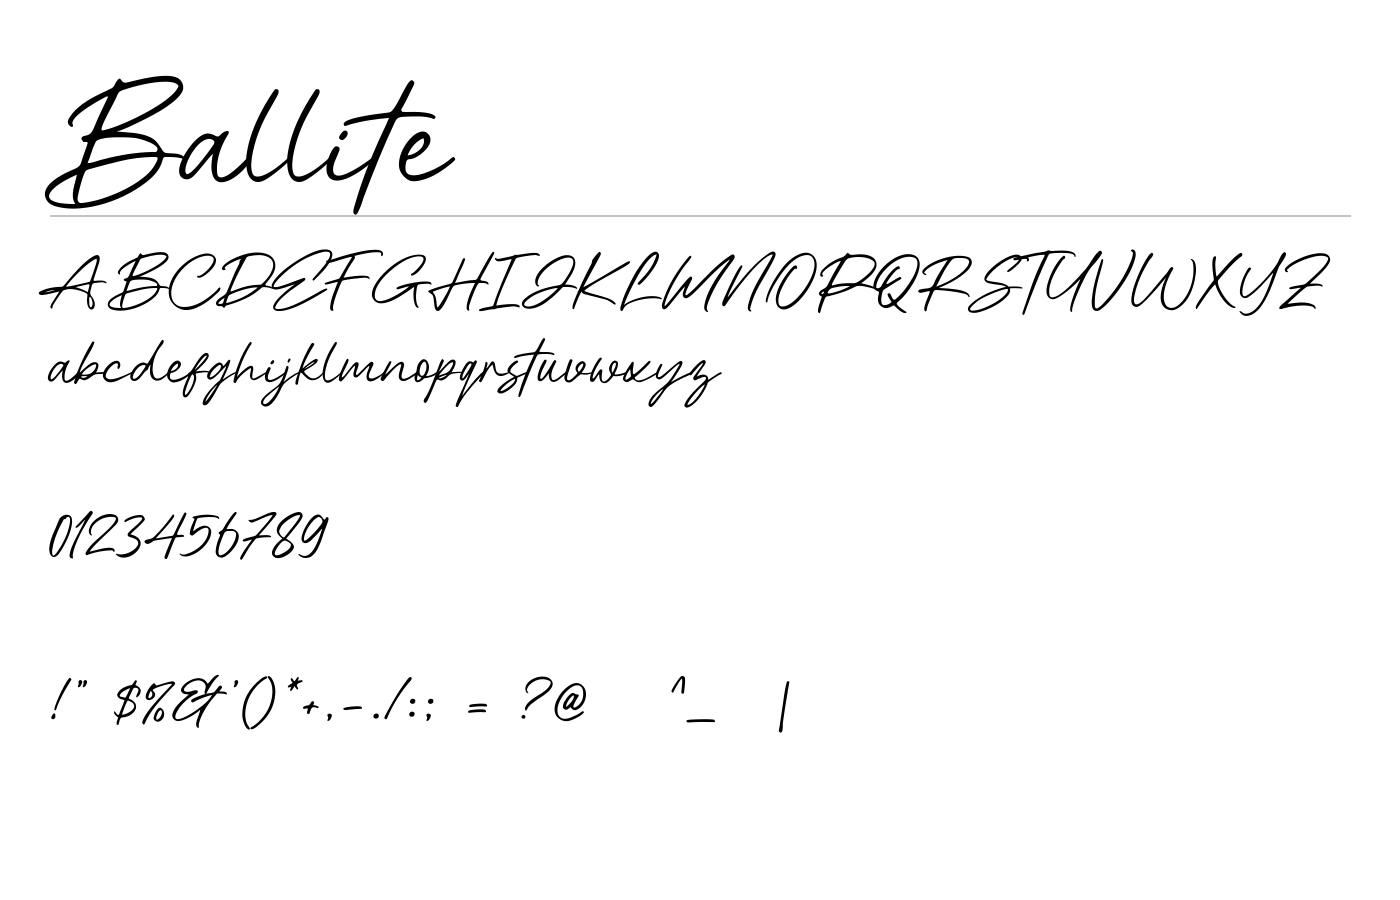 Ballite
ABCDEFGHIJKLMNOPQRSTUVWXYZ
abcdefghijklmnopqrstuvwxyz
0123456789
!" $%&'()*+,-./:; = ?@ ^_ |